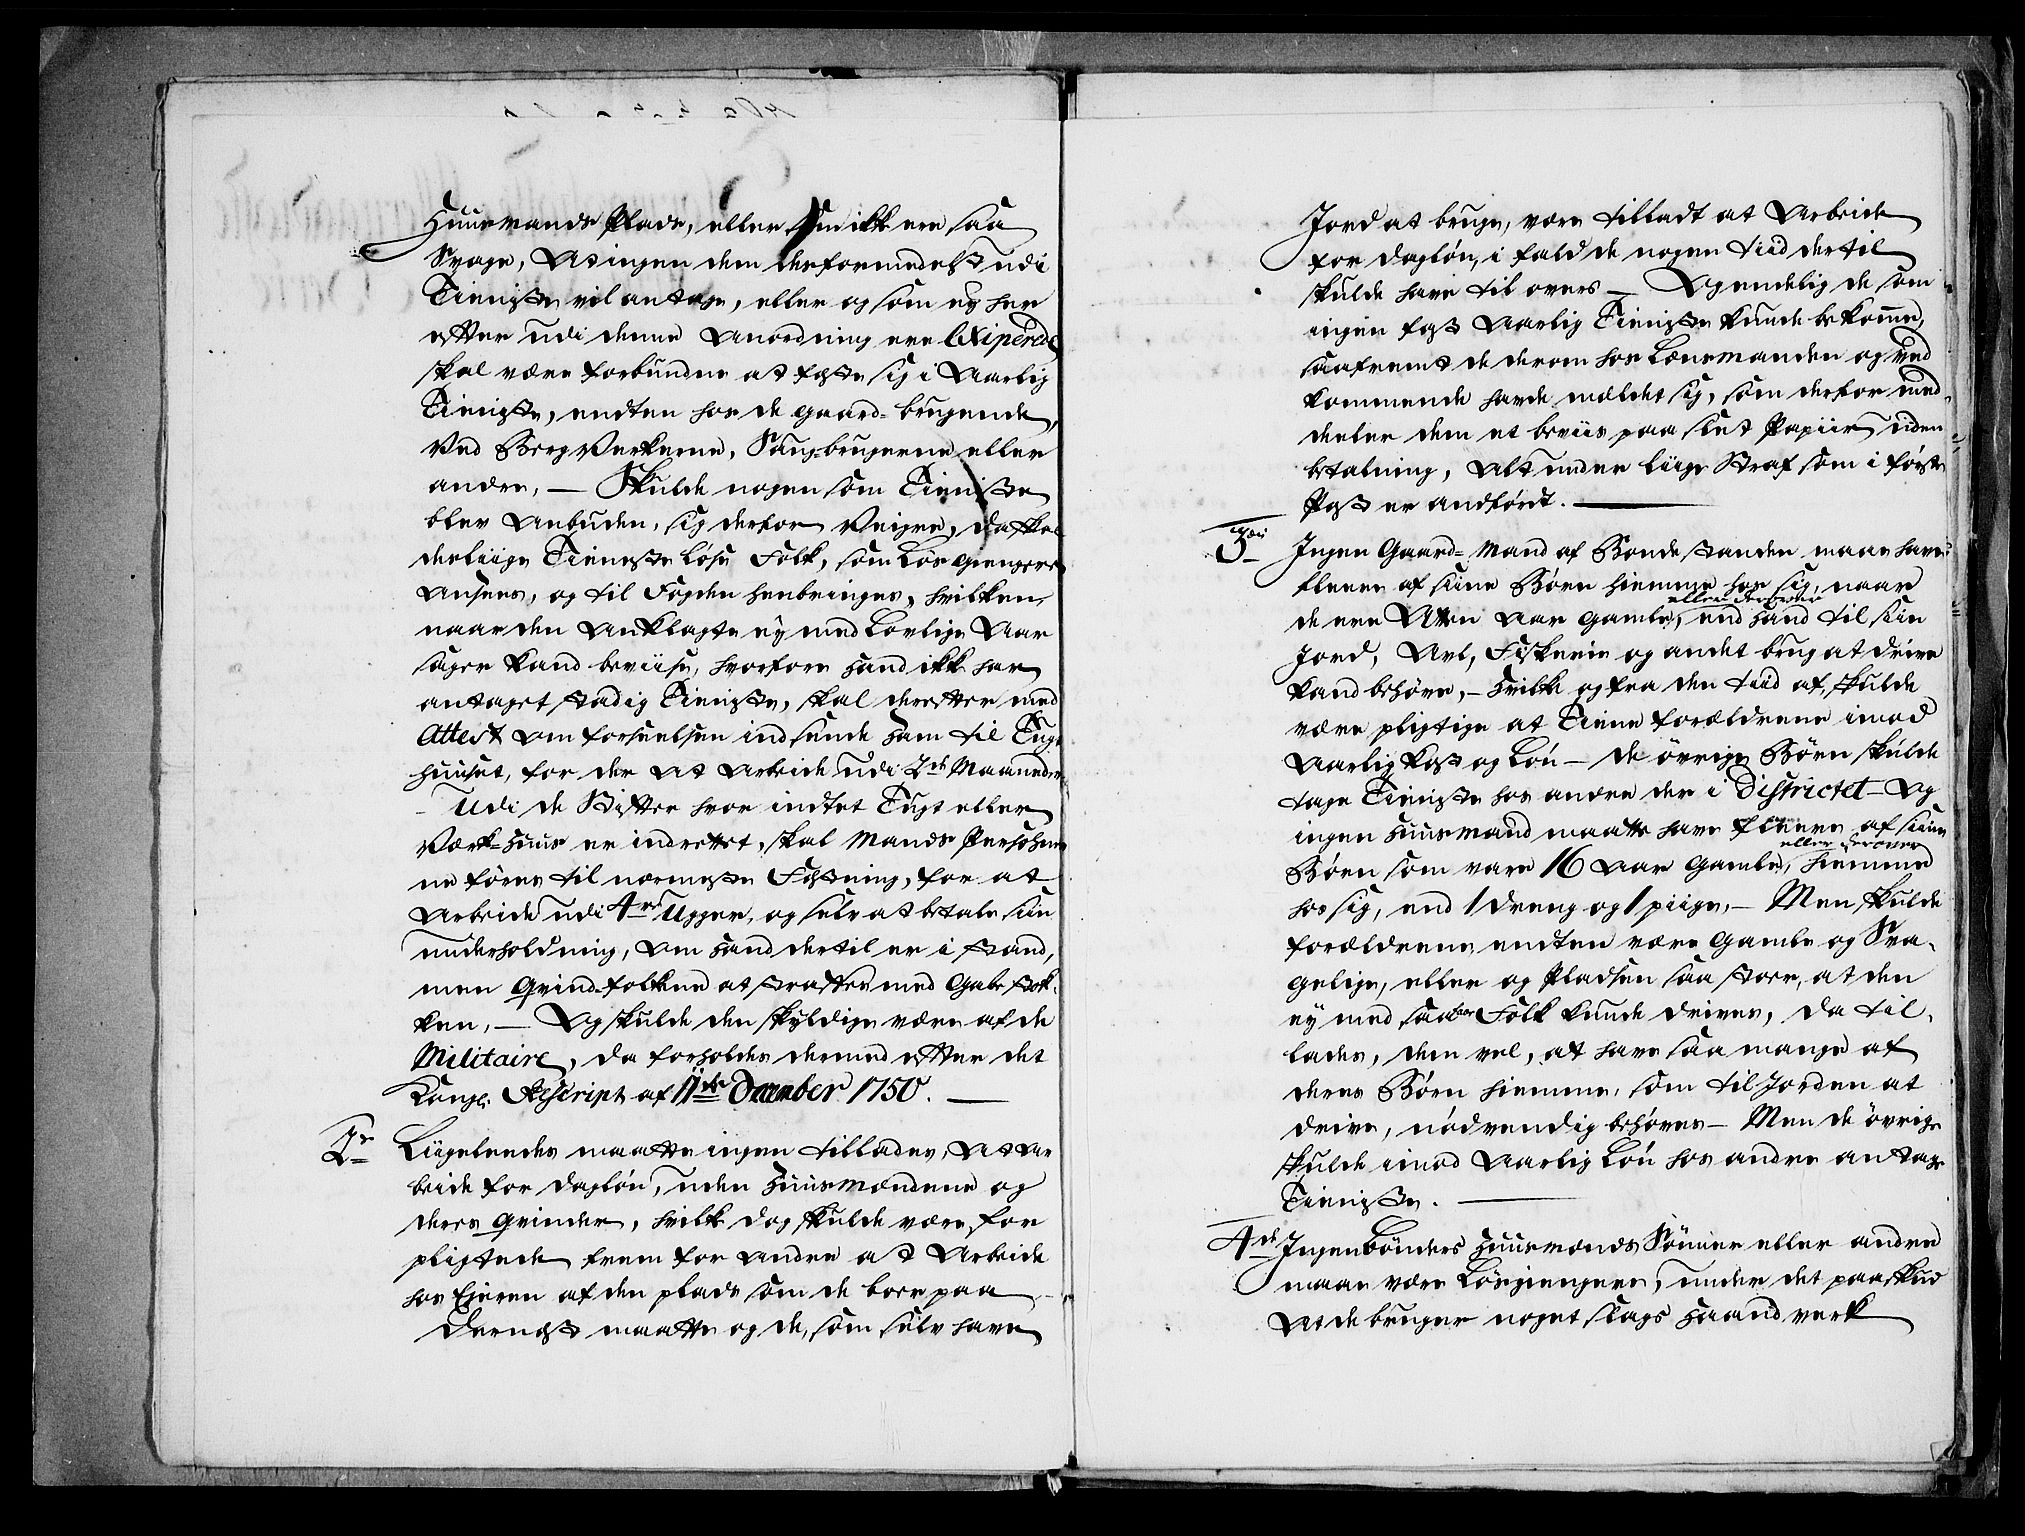 Huusmands Plads, eller som ikke ere saa
Svage, At ingen dem desformedelst udi
Tieniste vil antage, eller og som ey her
efter udi denne Anordning ere Exiperede
skal være forbunden at feste sig i Aarlig
Tieniste, endten hos de gaard-brugende,
Ved Bergverkerne, Saug-brugerne eller
andre, — Skulde nogen som Tieniste
blev Anbuden, sig derfor Veigre, da skal
desliige Tieniste løse Folk, som Løsgiengere
Ansees, og til Fogden henbringes, hvilken,
naar den Anklagte ey med Lovlige Aar
sager kand beviise, hvorfore hand ikke har
antaget stadig Tieniste, skal derefter med
Attest om forseelsen indsende Ham til Tugt
huuset, for der at Arbeide udi 2de Maaneder
— Udi de Stifter hvor indtet Tugt eller
Værk-Huus er indrettet, skal Mands Persohner
ne føres til nærmeste Festning, for at
Arbeide udi 4re Ugger, og selv at betale sin
underholdning, om hand dertil er i stand,
men Qvind-folkene at straffes med Gabestok-
ken, — Og skulde den skyldige være af de
Militaire, da forholdes dermed efter det
Kongl: Rescript af 11te December 1750. —
2de Liigeledes maatte ingen tillades, At Ar
beide for dagløn, uden Huusmændene og
deres Qvinder, hvilke dog skulde være for
pligtede frem for andre at Arbeide
hos Eieren af den plads som de boer paa
Dernest maatte og de, som selv have
Jord at bruge, være tilladt at Arbeide
for dagløn, i fald de nogen tiid dertil
skulde have til overs — Og endelig de som
ingen fast Aarlig Tieniste kunde bekomme,
saafremt de derom hos Lænsmanden og Ved
kommende havde meldet sig, som derfor med-
deeler dem et beviis paa slet Papiir uden
betalning, Alt under liige Straf som i første
Post er andført. —
3die Ingen Gaard-Mand af Bonde standen maae have
fleere af siine Børn hiemme hos sig, naar
eller derover
de ere Atten Aar gamle, end hand til siin
Jord, Avl, Fiskerie og andet brug at drive
kand behøve, — Hvilke og fra den tiid af, skulde
være pligtige at Tiene forældrene imod
Aarlig kost og Løn — de øvrige Børn skulde
tage Tieniste hos andre der i Districtet — Og
ingen Huusmand maatte have fleere af siine
eller derover
Børn som vare 16 Aar Gamle, hiemme
hos sig, end 1 dreng og 1 piige, — Men skulde
forældrene endten være gamle og Sva-
gelige, eller og Pladsen saa stoer, at den
ey med saadan Folk kunde drives, da til-
lades, dem vel, at have saa mange af
deres Børn hiemme, som til Jorden at
drive, nødvendig behøves — Men de øvrige
skulde imod Aarlig Løn hos andre antage
Tieniste. —
4de Ingen Bønders Huusmænds Sønner eller andre
maae være Løsgiengere, under det paaskud
At de bruger noget slags Haandverk